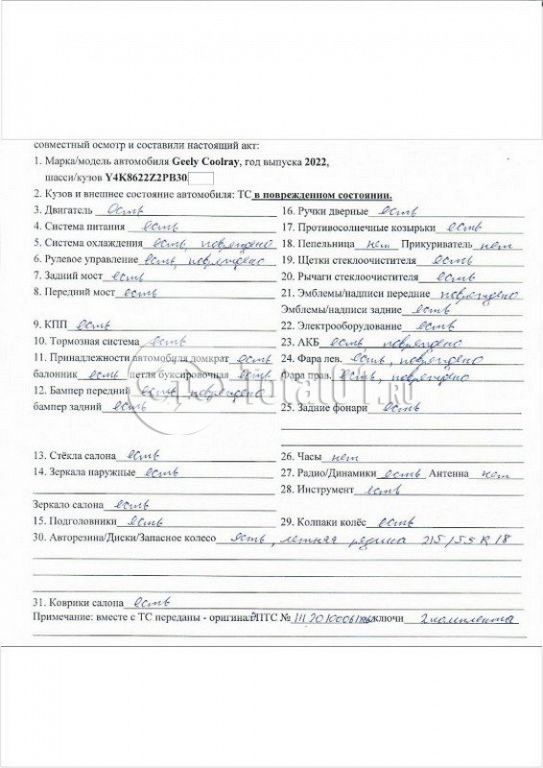 совместный осмотр и составили настоящий акт:
1. Марка/модель автомобиля Geely Coolray, год выпуска 2022,
шасси/кузов Y4K8622Z2PB30
2. Кузов и внешнее состояние автомобиля: ТС в поврежденном состоянии.
3. Двигатель есть
4. Система питания есть
5. Система охлаждения есть, повреждено
6. Рулевое управление есть, повреждено
7. Задний мост есть
8. Передний мост есть
9. КПП есть
10. Тормозная система есть
11. Принадлежности автомобиля домкрат есть
балонник есть петля буксировочная есть
12. Бампер передний есть, повреждено
бампер задний есть
13. Стёкла салона есть
14. Зеркала наружные есть
Зеркало салона есть
15. Подголовники есть
16. Ручки дверные есть
17. Противосолнечные козырьки есть
18. Пепельница нет Прикуриватель нет
19. Щетки стеклоочистителя есть
20. Рычаги стеклоочистителя есть
21. Эмблемы/надписи передние повреждено
Эмблемы/надписи задние есть
22. Электрооборудование есть
23. АКБ есть, повреждено
24. Фара лев. есть, повреждено
Фара прав. есть, повреждено
25. Задние фонари есть
26. Часы нет
27. Радио/Динамики есть Антенна нет
28. Инструмент есть
29. Колпаки колёс есть
30. Авторезина/Диски/Запасное колесо есть, летняя резина 215/55 R 18
31. Коврики салона есть
Примечание: вместе с ТС переданы - оригинал ПТС № ключи 2 комплекта